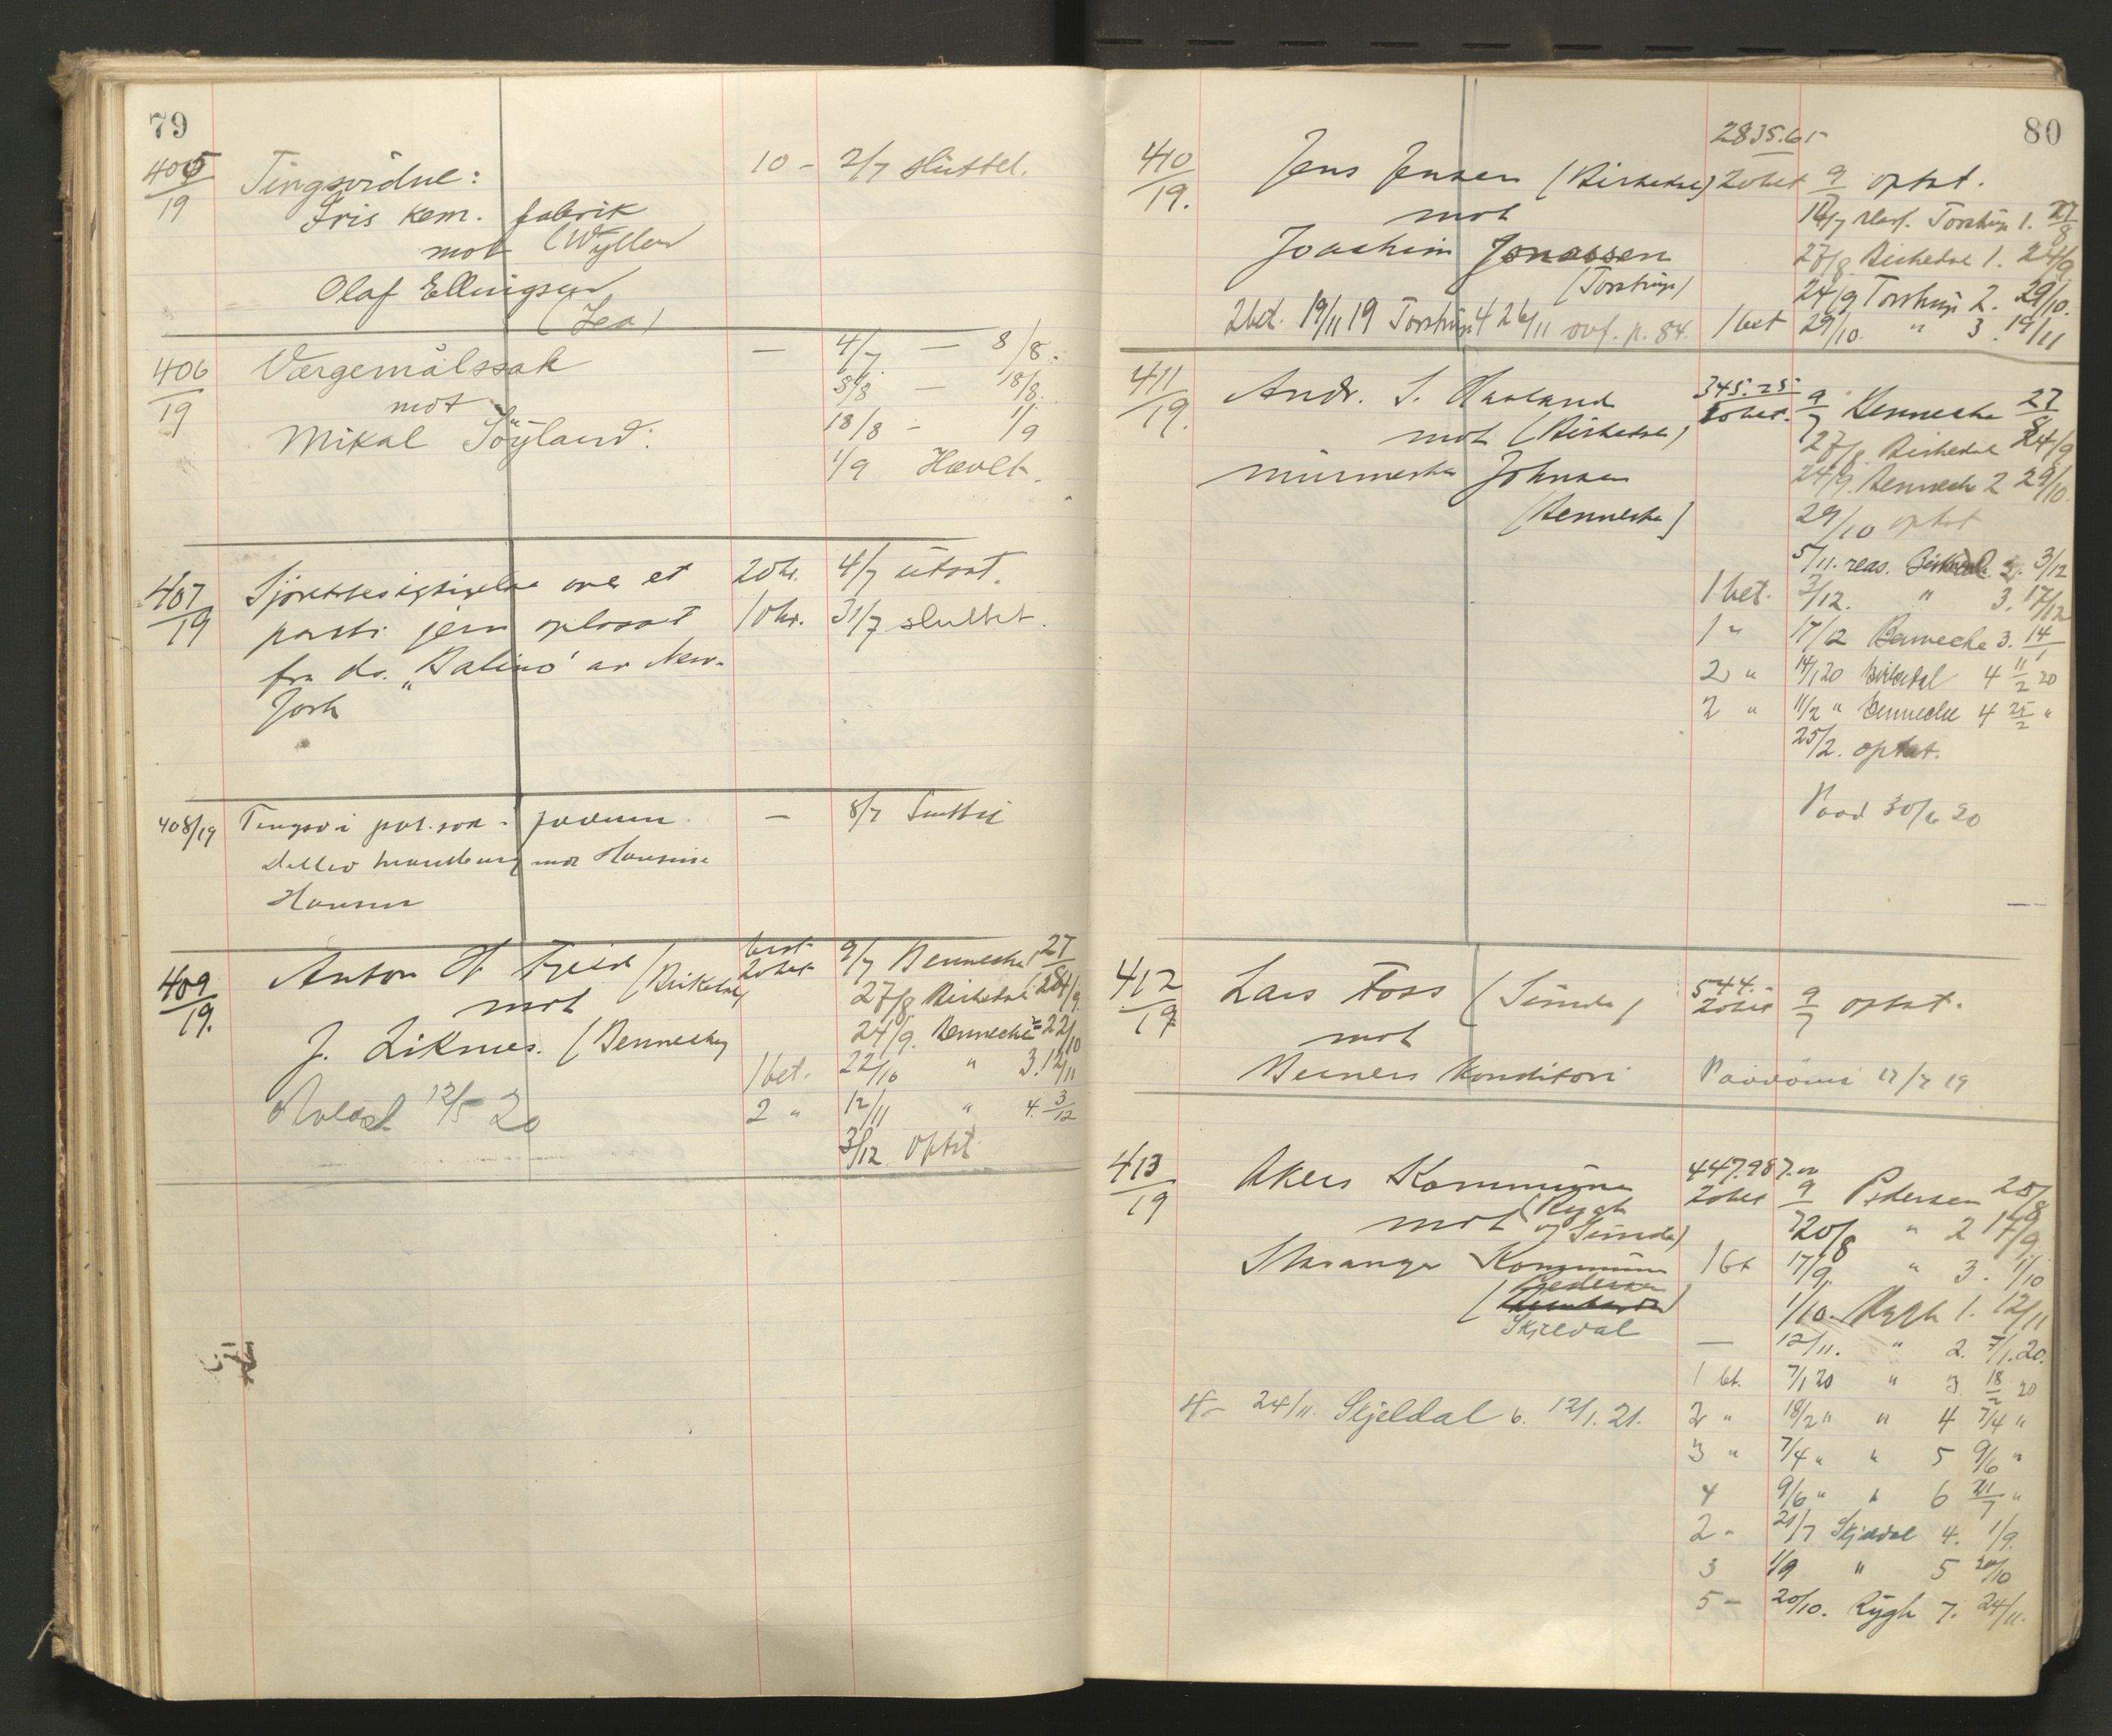 79
405/19 Tingsvidne: 10 - 2/7 sluttet.
Iris kem. fabrik
mot (Wyller)
Olaf Ellingsen
(Lea)
406/19 Værgemålssak — 4/7 — 8/8.
mot 8/8 — 18/8.
Mikal Söyland. 18/8 — 1/9
1/9 Hævet.
407/19 Sjörettesigtigelse over et 20 kr. 4/7 utsat.
parti jern oplosset 10 kr. 31/7 sluttet.
fra ds. „Balino" av New-
York
408/19 Tingsv i pat.sak — 8/7 Sluttet
mot Hansine
Hansen
409/19. Anton H (Birkedal) 20 bet 9/7 Bennecke 1 27/8
mot 27/8. Birkedal 1 24/9.
J. Liknes. (Bennecke) 24/9. Bennecke 2 22/10
1 bet. 22/10 " 3. 12/11
Avlæst 12/5 20 2 " 12/11 " 4. 3/12
3/12 optat
80
2835.65
410/19. Jens Jensen (Birkedal) 20 bet 9/7 optat.
mot 14/7 reas. Torstrup 1. 27/8
Joachim Jonassen 27/8 Birkedal 1. 24/9.
(Torstrup) 24/9 Torstrup 2. 29/10.
2 bet. 19/11 19 Torstrup 4 26/11 ovf. p. 84. 1 bet 29/10. " 3. 19/11
345.25
411/19. Andr. S. Haaland 20 bet. 9/7 Bennecke 27/8
mot (Birkedal) 27/8. Birkedal 24/9
murmester Johnsen 24/9. Bennecke 2 29/10.
(Bennecke) 29/10 optat
5/11. reas. Birkedal 2. 3/12
1 bet. 3/12. " 3. 17/12
1 " 17/12 Bennecke 3. 14/1
2 " 14/1 20 Birkedal 4 11/2 20
2 " 11/2 " Bennecke 4 25/2 "
25/2. optat.
30/6 20
544.-
412/19 Lars Foss (Sunde) 20 bet 9/7 optat.
mot
Berners Konditori Paadömt 17/7 19
447.987.00
413/19 Akers Kommune 20 bet 9/7 Pedersen 20/8
mot (Rygh og Sunde) 20/8 " 2 17/9.
Stavanger Kommune 1 bet 17/9. " 3. 1/10
(Pedersen) 1/10. Rygh 1. 12/11
Skjeldal — 12/11. " 2. 7/1.20.
1 bt. 7/1 20 " 3 18/2 20
4- 24/11. Skjeldal 6. 12/1. 21. 2 " 18/2 " " 4 7/4 "
3 " 7/4 " " 5 9/6 "
4 9/6 " " 6 21/7 "
2 - 21/7 Skjeldal 4. 1/9.
3 1/9 " 5 20/10
5 - 20/10. Rygh 7. 24/11.